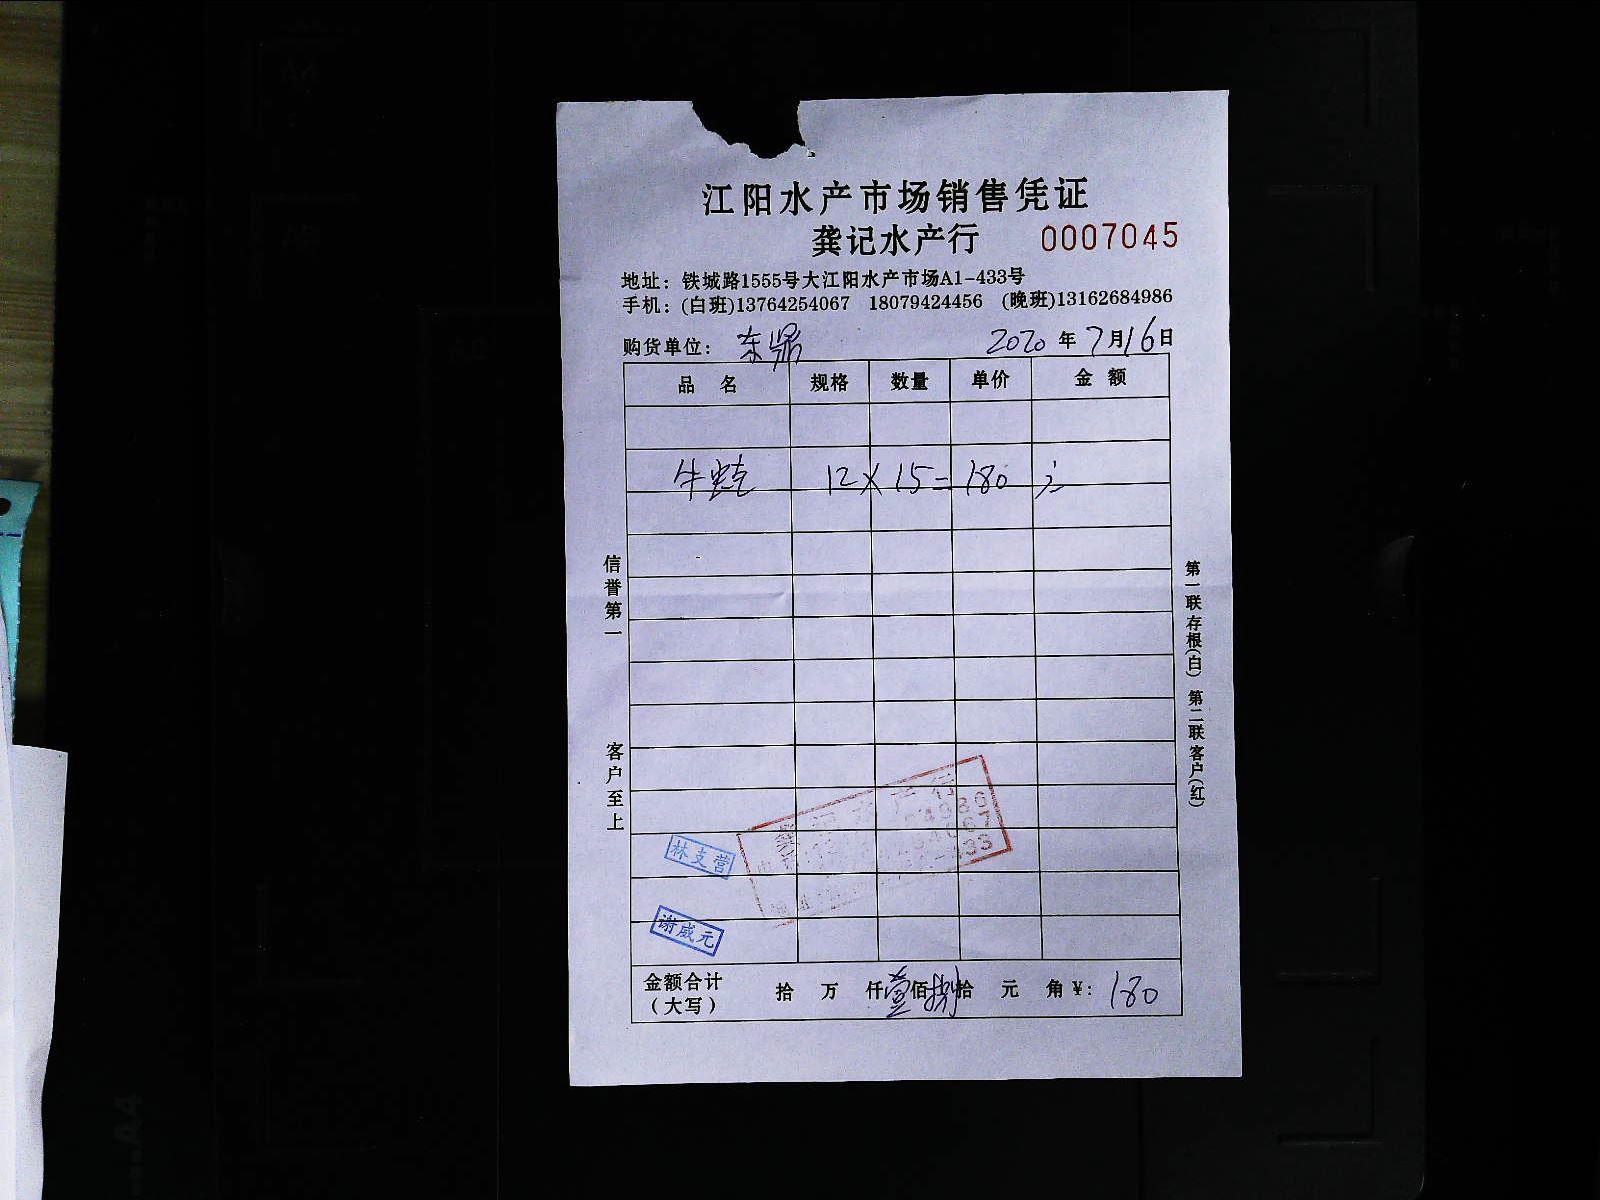 江阳水产市场销售凭证
龚记水产行 0007045
地址：铁城路1555号大江阳水产市场A1-433号
手机：(白班)13764254067 18079424456 (晚班)13162684986
购货单位： 东鼎 2020年7月16日
品名 规格 数量 单价 金额
牛 12×15=180元
信誉第一
客户至上
第一联存根(白) 第二联客户(红)
水产行
林支营
谢威元
金额合计 拾 万 仟壹佰捌拾 元 角¥: 180
（大写）
A4